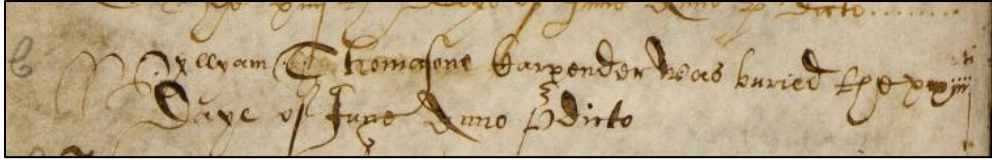 Daye of June Anno p dicto........
b Wyllyam Thomasone Karpender was buried the
Daye of June Anno p dicto